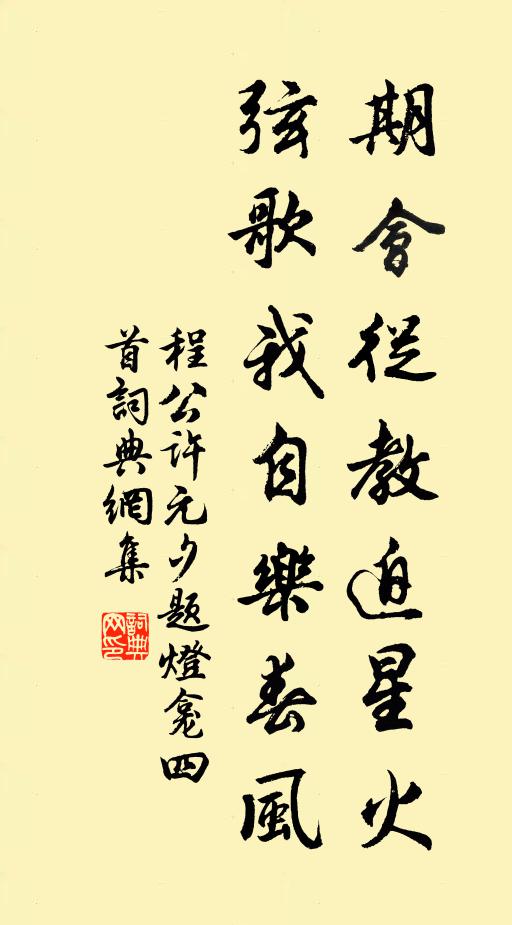 期會從教迫星火
弦歌我自樂春風
程公許元夕題燈龕四
首詞典網集
詞典
网印